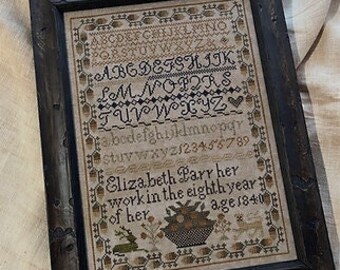 ABCDEFGHIJKLMNO
PQRSTUVWXYZ
ABCDEFGHIJK
LMNOPQRS
TUVWXYZ
abcdefghijklmnopqr
stuvwxyz123456789
Elizabeth Parr her
work in the eighth year
of her age 1840